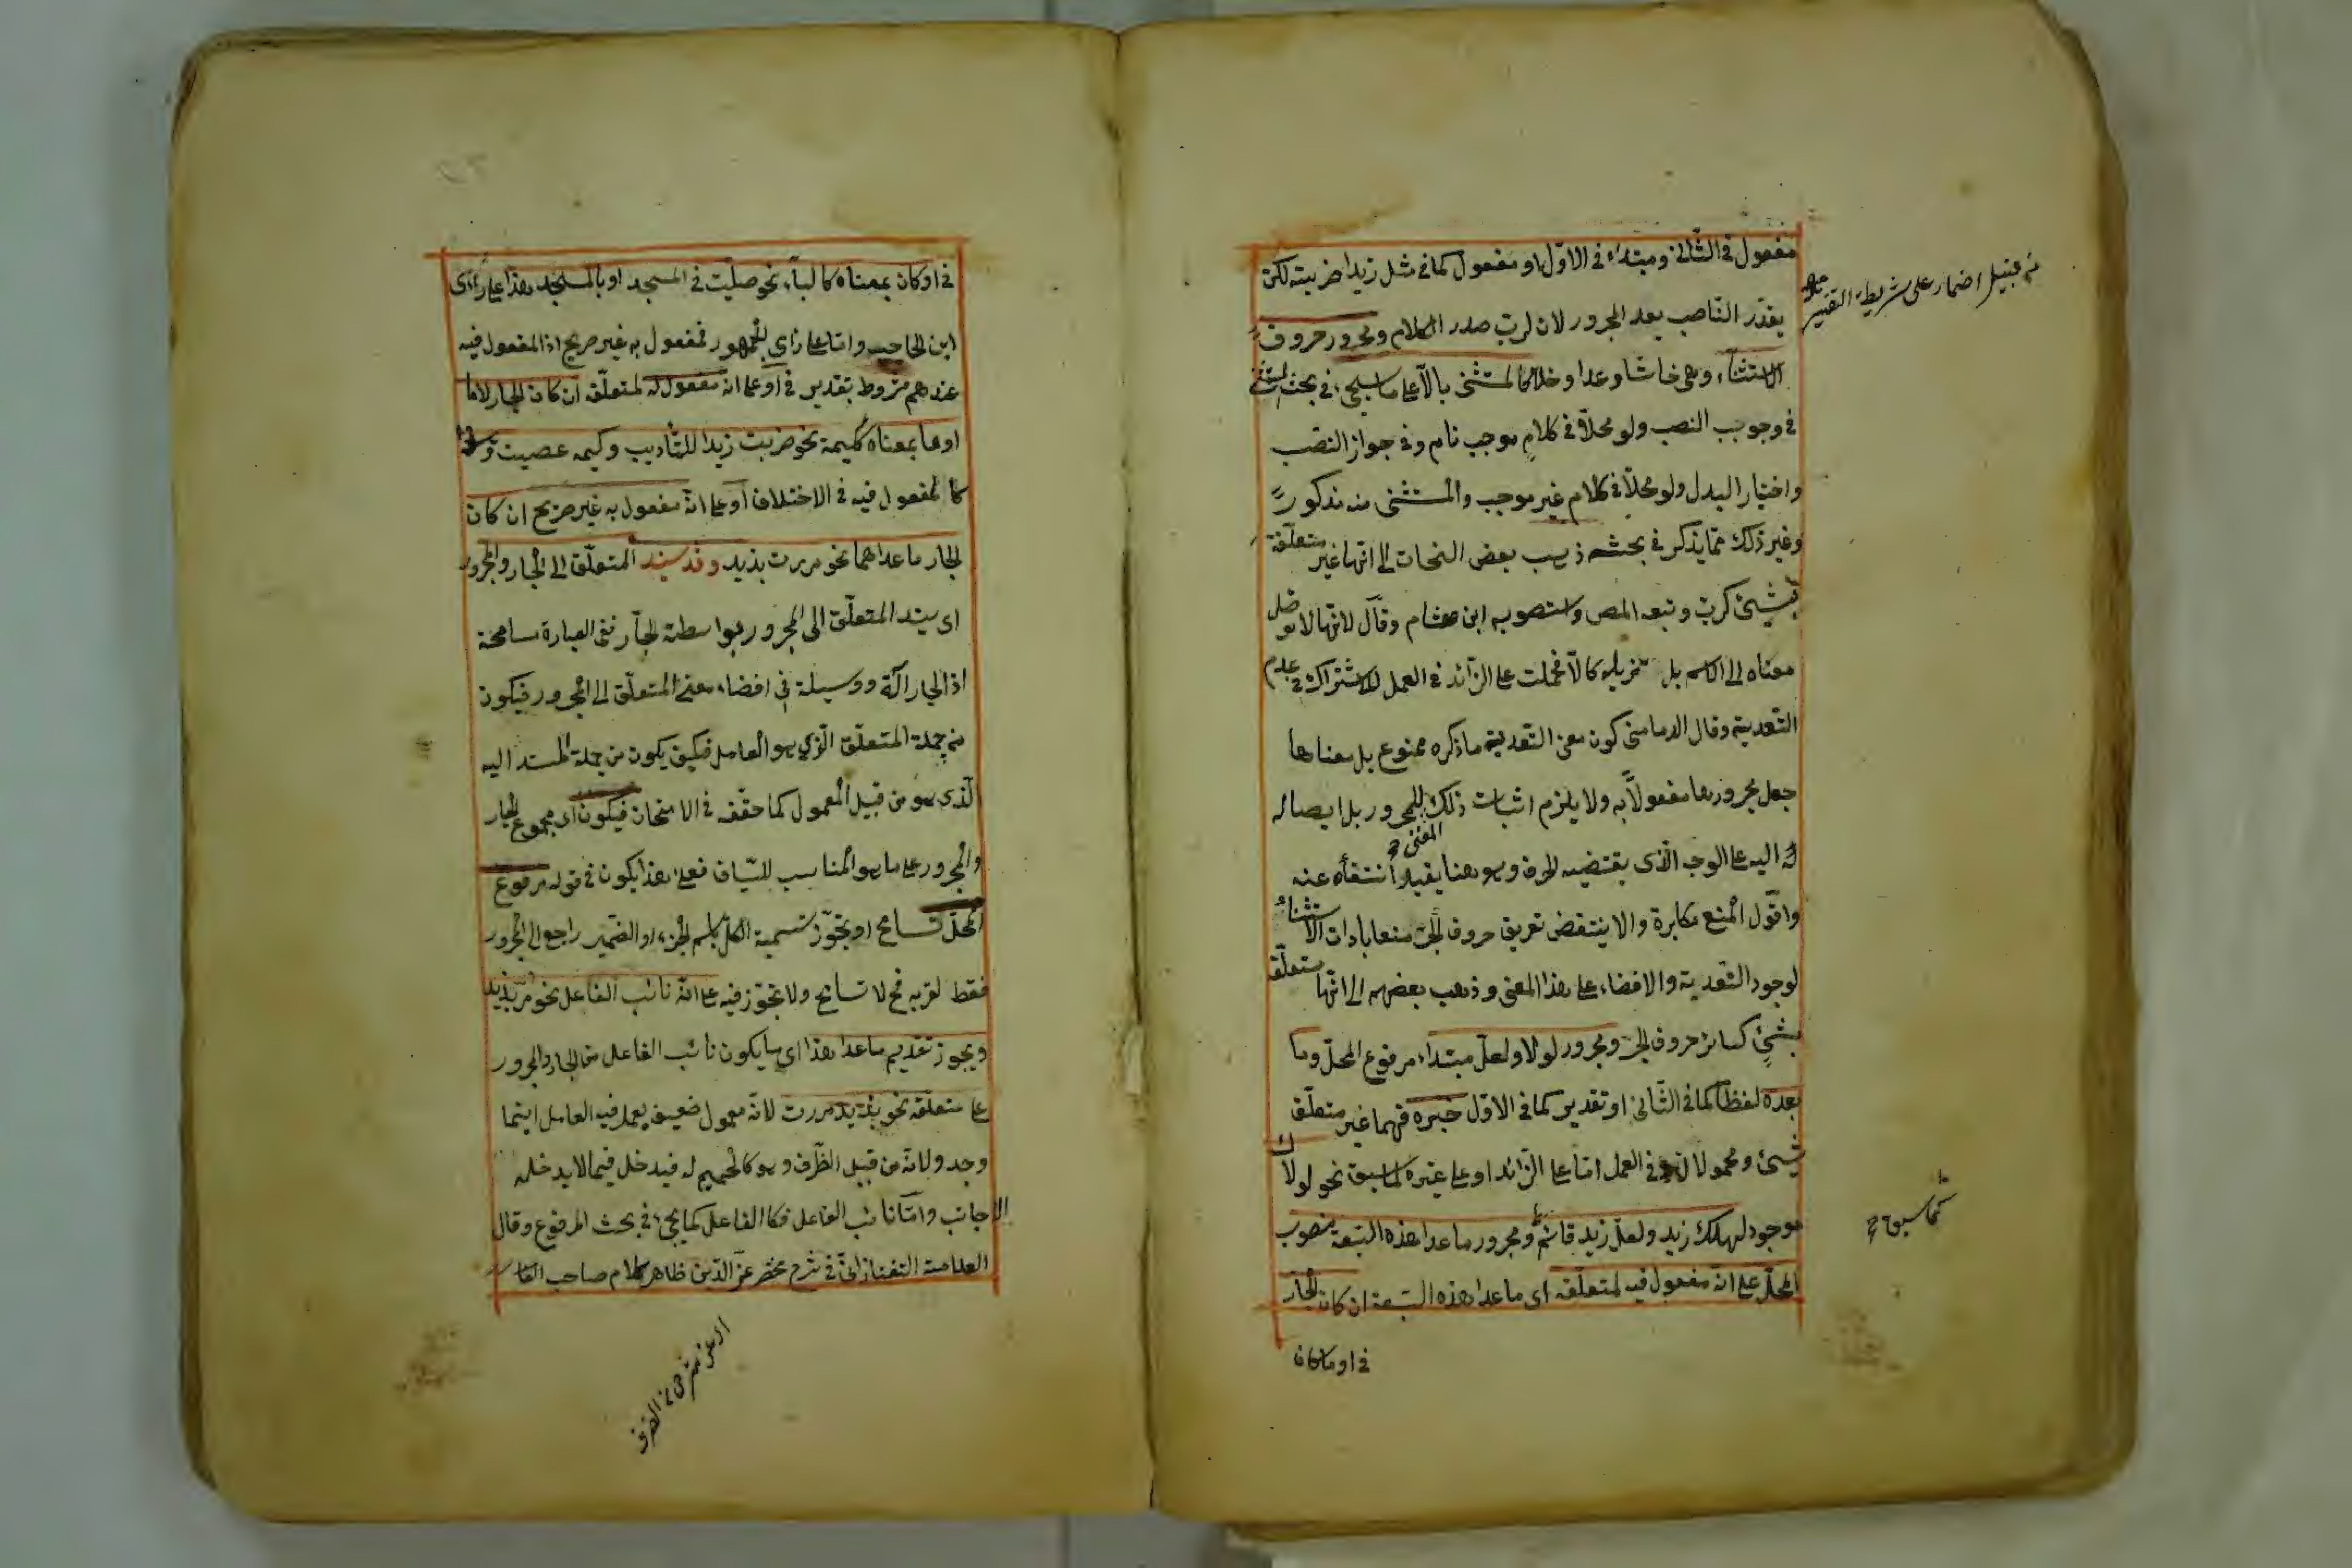 مفعول فى الثانى ومبتداء فى الاول او مفعول كما فى مثل زيدا ضربته لكن
يقدّر النّاصب بعد المجرور لان لرب صدر الكلام ومجرور حروف
الاستثناء وهى خاشا وعدا وخلا كالمستثنى بالاّ على ما سيجئ فى بحث المستثنى
فى وجوب النصب ولو محلاّ فى كلام موجب تام وفى جواز النصب
واختيار البدل ولو محلاّ فى كلام غير موجب والمستثنى منه مذكور
وغير ذلك ممّا يذكر فى بحثه ذهب بعض النحات الى انّها غير متعلّقة
بشئ كربّ وتبعه المص واستصوبه ابن هشام وقال لانّها لا توصل
معناه الى الاسم بل تزيله كالاّ فحملت على الزّائد فى العمل للاشتراك فى عدم
التّعدية وقال الدمامنى كون معنى التّعدية ما ذكره ممنوع بل معناها
جعل مجرورها مفعولاً به ولا يلزم اثبات ذلك للمجرور بل ايصاله
اليه على الوجه الّذى يقتضيه الحرف وهو هنا يفيد انتفاه عنه
المعنى
واقول المنع مكابرة والا ينتقض تعريف حروف الجرّ منعا بادات الاستثناء
لوجود التّعدية والافضاء على هذا المعنى وذهب بعضهم الى انّها متعلّقة
بشئ كسائر حروف الجرّ ومجرور لولا ولعلّ مبتداء مرفوع المحلّ وما
بعده لفظاً كما فى الثّانى او تقدير كما فى الاوّل خبره فهما غير متعلّق
شئ ومحمولان فى العمل امّا على الزّائد او على غيره لما سبق نحو لولاك
موجود لهلك زيد ولعلّ زيد قائم ومجرور ما عدا هذه السّبعة منصوب
المحلّ على انّه مفعول فيه لمتعلّقه اى ما عدا هذه السّبعة ان كان الجارّ
فى او ما كان
من قبيل اضمار على شريطة التفسير
كما سبق
فى او كان بمعناه كالباء نحو صلّيت فى المسجد او بالمسجد هذا على رأى
ابن الحاجب وامّا على رأى الجمهور فمفعول به غير صريح اذ المفعول فيه
عندهم مشروط بتقدير فى او على انّه مفعول له لمتعلّقه ان كان الجار لاما
او ما بمعناه ككيمه نحو ضربت زيدا للتّأديب وكيمه عصيت وهذا
كالمفعول فيه فى الاختلاف او على انّه مفعول به غير صريح ان كان
الجار ما عداهما نحو مررت بزيد وقد يسند المتعلّق الى الجار والمجرور
اى يسند المتعلّق الى المجرور بواسطة الجارّ ففى العبارة مسامحة
اذ الجار آلة ووسيلة فى افضاء معنى المتعلّق الى المجرور فيكون
من جملة المتعلّق الّذى هو العامل فكيف يكون من جملة المسند اليه
الّذى هو من قبيل المعمول كما حقّقه فى الامتحان فيكون اى مجموع الجار
والمجرور على ما هو المناسب للسّياق فعلى هذا يكون فى قوله مرفوع
المحلّ تسامح او تجوّز تسمية الكلّ باسم الجزء او الضّمير راجع الى المجرور
فقط لقربه فح لا تسامح ولا تجوّز فيه على انّه نائب الفاعل نحو مرّ بزيد
ويجوز تقديم ما عدا هذا اى ما يكون نائب الفاعل من الجار والمجرور
على متعلّقه نحو بزيد مررت لانّه معمول ضعيف يعمل فيه العامل اينما
وجد ولانّه من قبيل الظّرف وهو كالحميم له فيدخل فيما لا يدخله
الاجانب وامّا نائب الفاعل فكالفاعل كما يجئ فى بحث المرفوع وقال
العلامة التفتازانى فى شرح مختصر عزّ الدّين ظاهر كلام صاحب